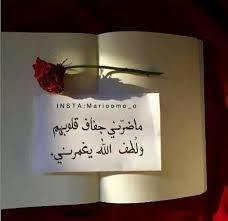 INSTA:Marioomo_o
ماضرّني جفاف قلوبهم
ولُطف الله يغمرني.